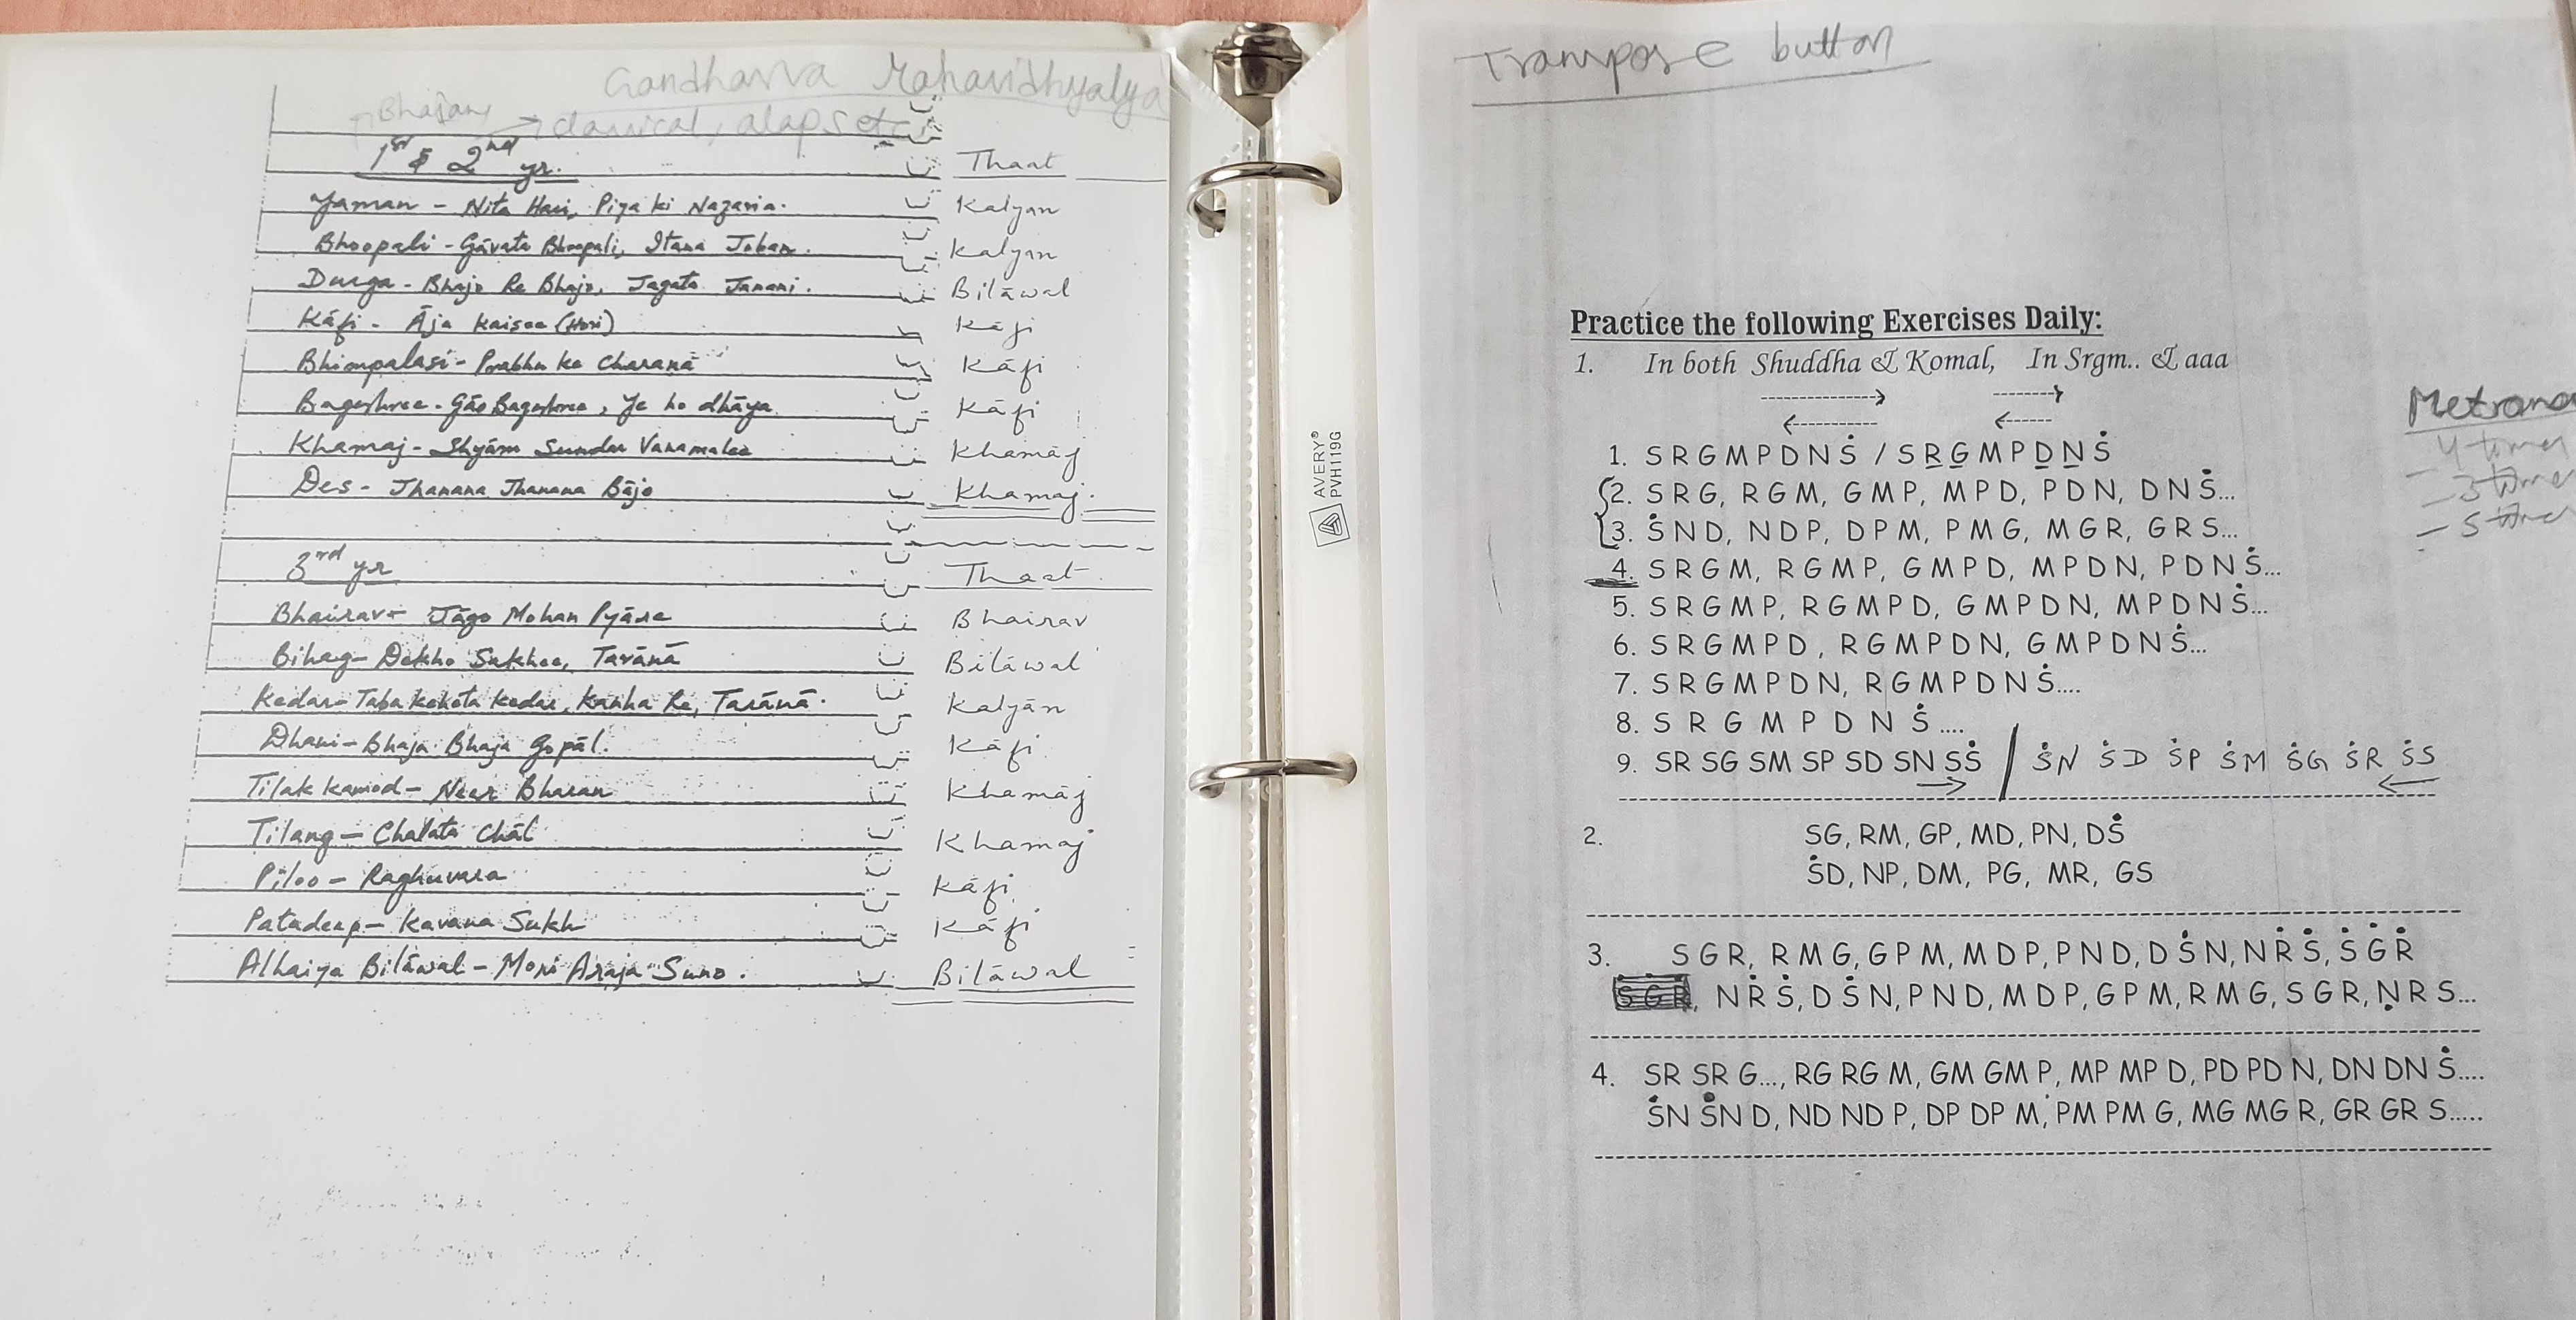 Gandharva Mahavidhyalya
Bhajans → classical, alaps etc
1st & 2nd yr. Thaat
Yaman - Nita Hari, Piya ki Nazaria. Kalyan
Bhoopali - Gāvata Bhoopali, Itana Joban. Kalyan
Durga - Bhajo Re Bhajo, Jagata Janani. Bilāwal
Kāfi - Āja Kaisee (Hori) Kāfi
Bhimpalasi - Prabhu ke Charanā Kāfi
Bageshree - Gāo Bageshree, Ye ho dhāya Kāfi
Khamaj - Shyām Sundar Vanamalee Khamāj
Des - Jhanana Jhanana Bājo Khamaj.
3rd yr Thaat
Bhairav - Jāgo Mohan Pyāre Bhairav
Bihag - Dekho Sakhee, Tarānā Bilāwal
Kedar - Taba Kahata Kedar, Kanha Re, Tarānā. Kalyān
Dhani - Bhaja Bhaja Gopāl. Kāfi
Tilak Kamod - Neer Bharan Khamāj
Tilang - Chalata Chāl Khamaj
Piloo - Raghuvara Kāfi
Patadeep - Kavana Sukh Kāfi
Alhaiya Bilāwal - Mori Araja Suno. Bilāwal
AVERY®
PVH119G
Transpose button
Practice the following Exercises Daily:
1. In both Shuddha & Komal, In Srgm.. & aaa
1. S R G M P D N Ṡ / S R̲ G̲ M P D̲ N̲ Ṡ
2. S R G, R G M, G M P, M P D, P D N, D N Ṡ...
3. Ṡ N D, N D P, D P M, P M G, M G R, G R S...
4. S R G M, R G M P, G M P D, M P D N, P D N Ṡ...
5. S R G M P, R G M P D, G M P D N, M P D N Ṡ...
6. S R G M P D, R G M P D N, G M P D N Ṡ...
7. S R G M P D N, R G M P D N Ṡ....
8. S R G M P D N Ṡ....
9. SR SG SM SP SD SN SṠ / ṠN ṠD ṠP ṠM ṠG ṠR ṠS
2. SG, RM, GP, MD, PN, DṠ
ṠD, NP, DM, PG, MR, GS
3. S G R, R M G, G P M, M D P, P N D, D Ṡ N, N Ṙ Ṡ, Ṡ Ġ Ṙ
S G R, N Ṙ Ṡ, D Ṡ N, P N D, M D P, G P M, R M G, S G R, Ṇ R S...
4. SR SR G..., RG RG M, GM GM P, MP MP D, PD PD N, DN DN Ṡ....
ṠN ṠN D, ND ND P, DP DP M, PM PM G, MG MG R, GR GR S.....
- 4 times
- 3 times